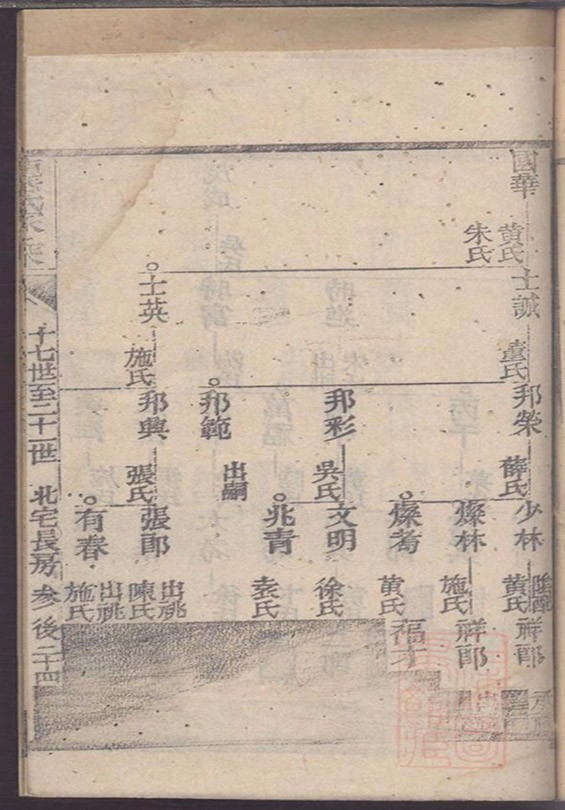 國華
黃氏
朱氏
士誠
盧氏
邦榮
薛氏
少林
黃氏
祥郎
燦林
施氏
祥郎
燦蒭
黃氏
福才
邦彩
吳氏
文明
徐氏
兆青
袁氏
邦範
出嗣
士英
施氏
邦興
張氏
張郎
出祧
陳氏
有春
出祧
施氏
十七世至二十一世 北宅長房 参後 二十四